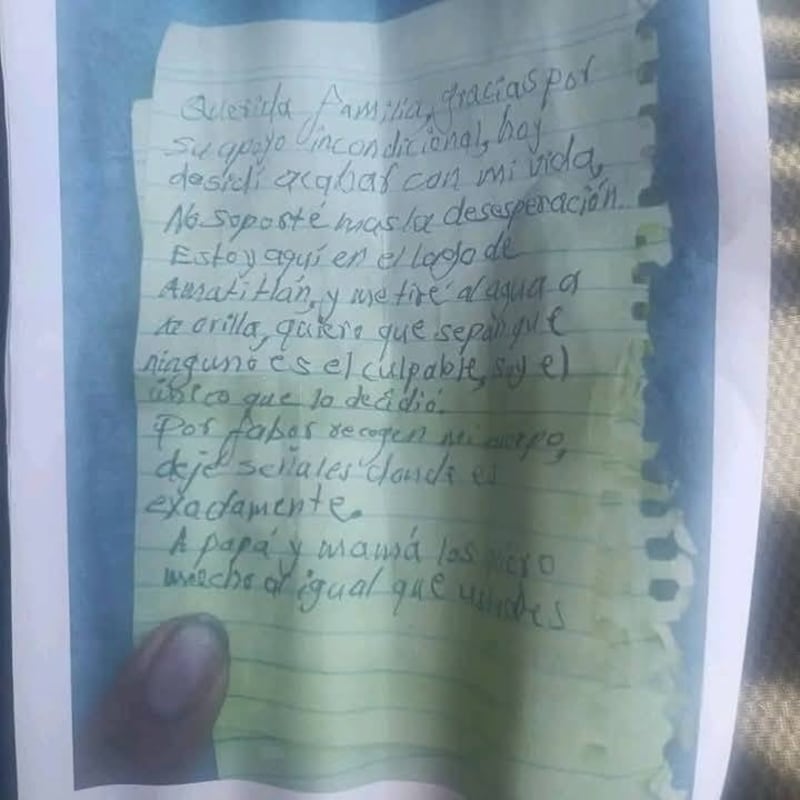 Querida familia, gracias por
su apoyo incondicional, hoy
desidí acabar con mi vida,
No soporté mas la desesperación.
Estoy aquí en el lago de
Amatitlán, y me tiré al agua a
la orilla, quiero que sepan que
ninguno es el culpable, soy el
único que lo decidió.
Por fabor recogen mi cuerpo,
dejé señales donde es
exactamente.
A papá y mamá los
mucho al igual que ustedes